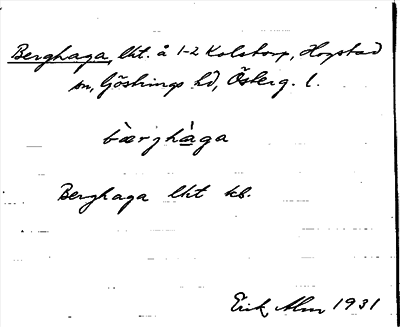 Berghaga, lht. å 1-2 Kolstorp, Hogstad
sn, Göstrings hd, Österg. l.
bærghàga
Berghaga lht kb.
Erik Alm 1931